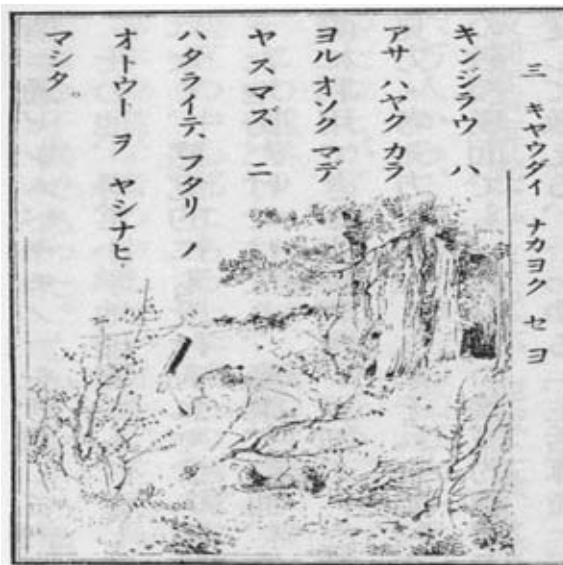 三 キャウダイ ナカヨク セヨ
キンジラウ ハ
アサ ハヤク カラ
ヨル オソク マデ
ヤスマズ ニ
ハタライテ、フタリ ノ
オトウト ヲ ヤシナヒ
マシタ。